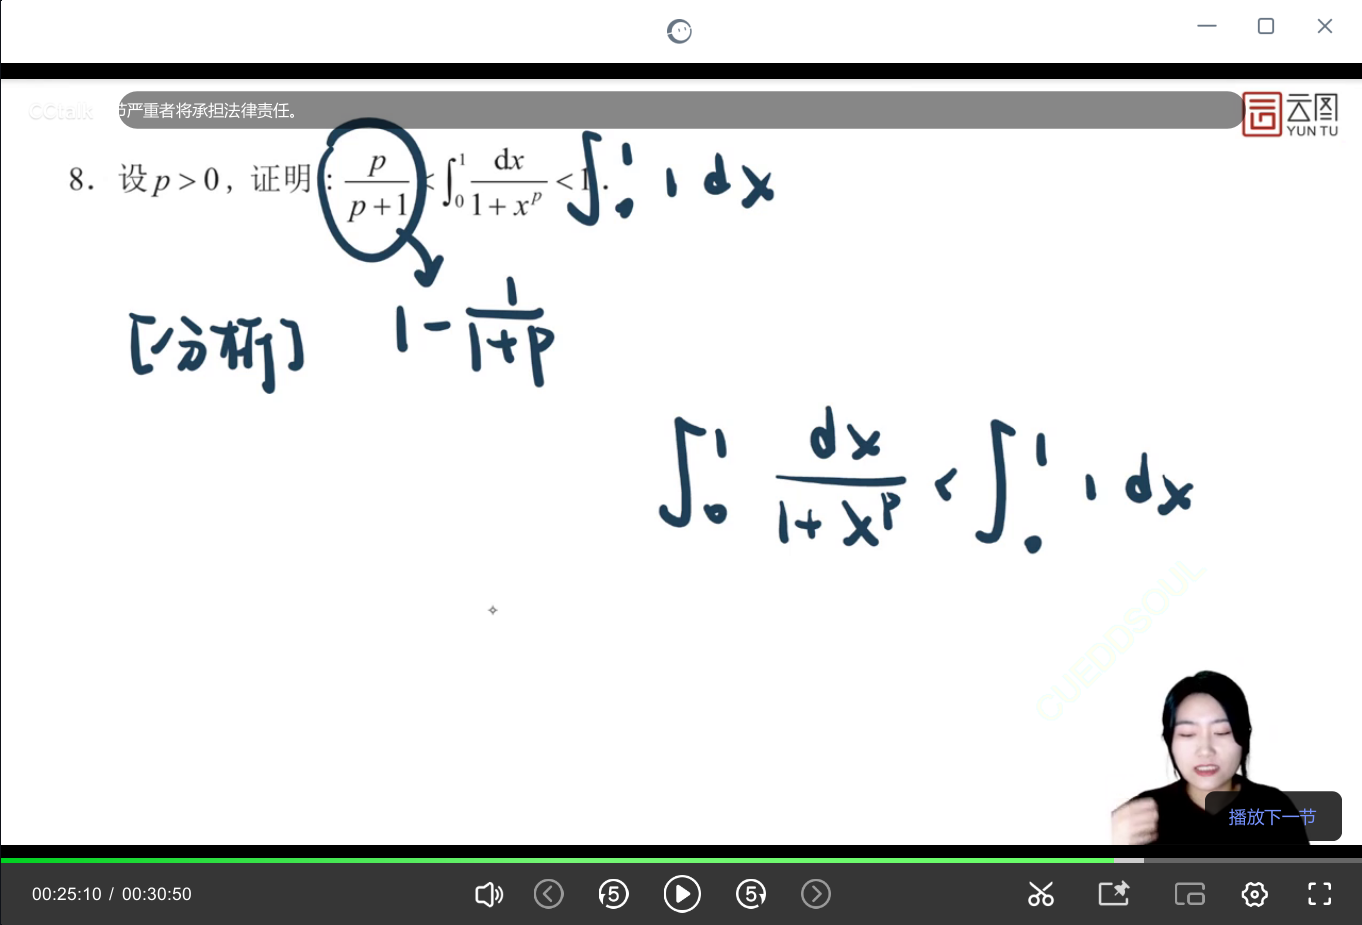 CCtalk
节严重者将承担法律责任。
云图
YUN TU
8. 设 p > 0, 证明: p/(p+1) < ∫₀¹ dx/(1+xᵖ) < 1. ∫₀¹ 1 dx
[分析] 1 - 1/(1+p)
∫₀¹ dx/(1+xᵖ) < ∫₀¹ 1 dx
CUEDDSOUL
播放下一节
00:25:10 / 00:30:50
5
5